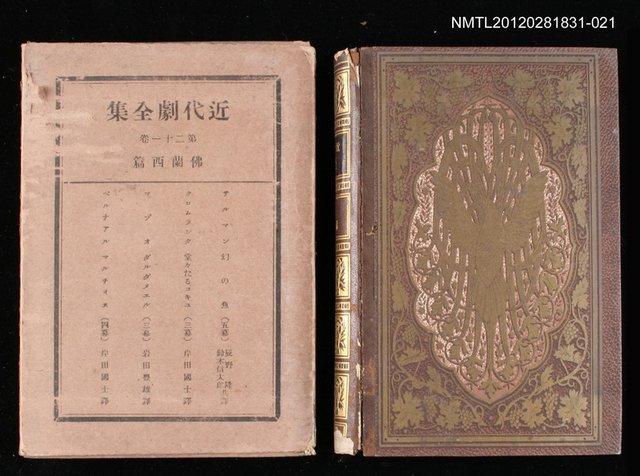 NMTL20120281831-021
近代劇全集
第二十一卷
佛蘭西篇
サルマン 幻の魚 (五幕) 辰野隆 鈴木信太郎 共譯
クロムランク 堂々たるコキュ (三幕) 岸田國士譯
マゾオ ダルダメル (三幕) 岩田豐雄譯
ベルナアル マルチィヌ (四幕) 岸田國士譯